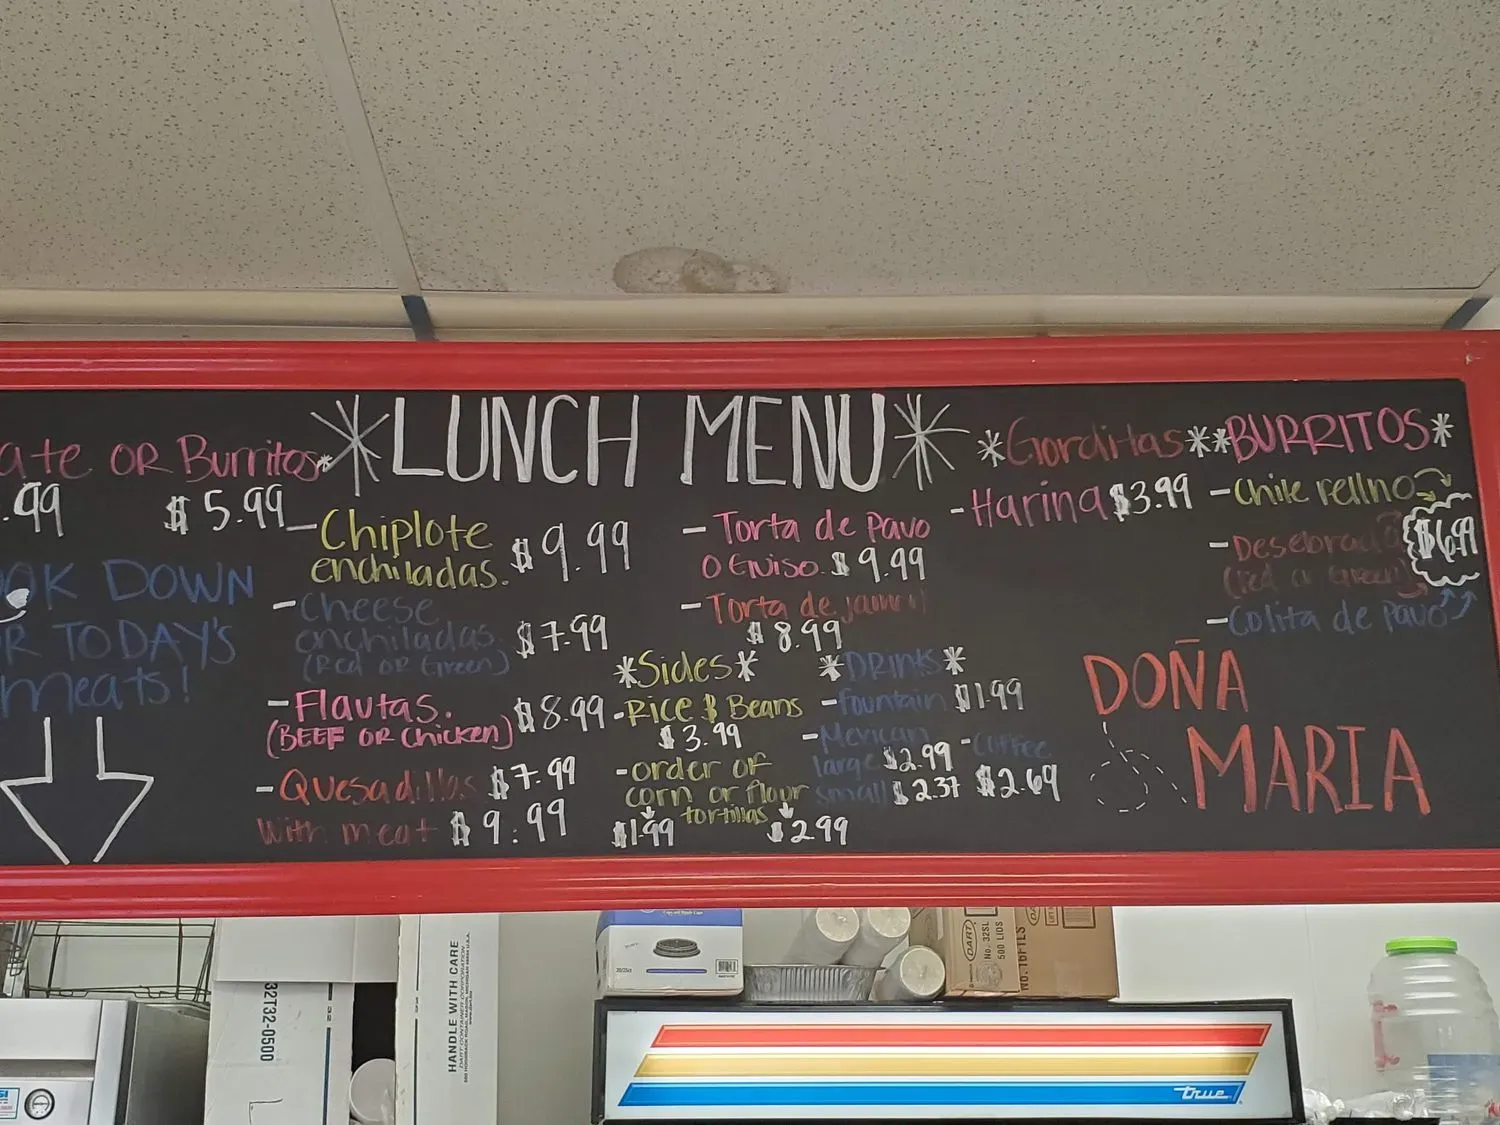 ate OR Burritos*
.99 $5.99
OK DOWN
R TODAY'S
meats!
*LUNCH MENU*
-Chiplote
enchiladas. $9.99
-Cheese
enchiladas $7.99
(Red or Green)
-Flautas. $8.99
(BEEF OR Chicken)
-Quesadillas $7.99
With meat $9.99
-Torta de Pavo
O Gviso. $9.99
-Torta de jamon
$8.99
*Sides*
-Rice $ Beans
$3.99
-order of
corn or flour
tortillas
$1.99 $2.99
*DRINKS*
-fountain $1.99
-Mexican
large $2.99
small $2.37
-Coffee
$2.69
*Gorditas*
-Harina $3.99
*BURRITOS*
-Chile rellno
-Desebrada
(Red or Green)
-Colita de Pavo
$6.99
DOÑA
MARIA
32T32-0500
HANDLE WITH CARE
DART
No. 32SL
500 LIDS
NO. 16FTLS
true